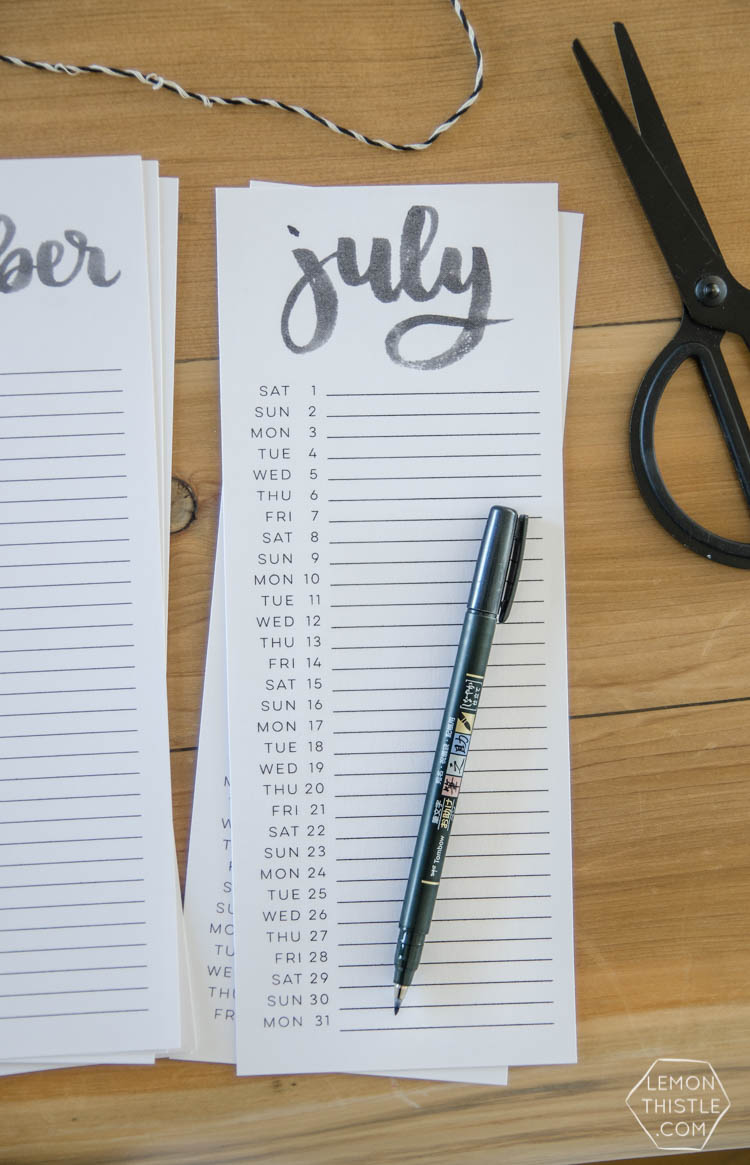 ber
july
SAT 1
SUN 2
MON 3
TUE 4
WED 5
THU 6
FRI 7
SAT 8
SUN 9
MON 10
TUE 11
WED 12
THU 13
FRI 14
SAT 15
SUN 16
MON 17
TUE 18
WED 19
THU 20
FRI 21
SAT 22
SUN 23
MON 24
TUE 25
WED 26
THU 27
FRI 28
SAT 29
SUN 30
MON 31
筆文字
お助け
Tombow
M
W
T
F
S
SU
MO
TU
WE
THU
FR
LEMON
THISTLE
.COM